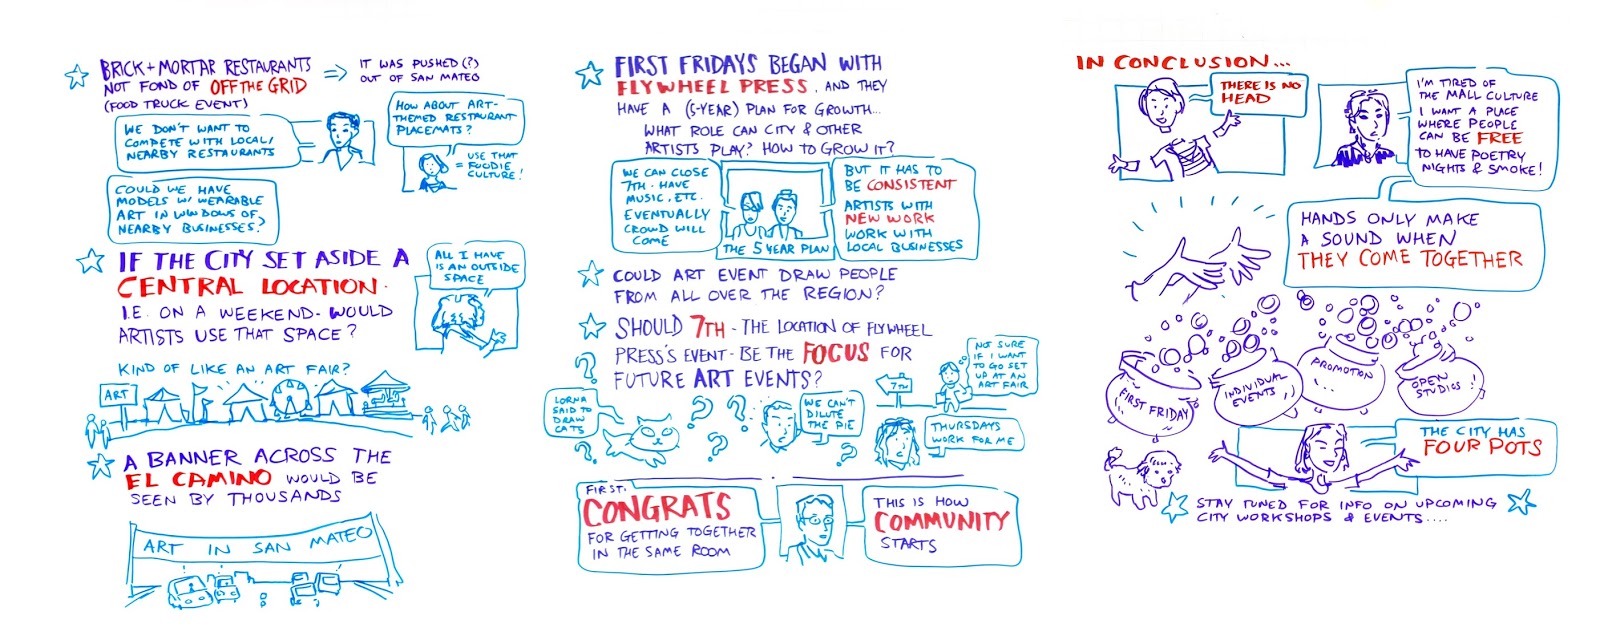 BRICK + MORTAR RESTAURANTS
NOT FOND OF OFF THE GRID
(FOOD TRUCK EVENT)
⇒ IT WAS PUSHED (?)
OUT OF SAN MATEO
WE DON'T WANT TO
COMPETE WITH LOCAL/
NEARBY RESTAURANTS
HOW ABOUT ART-
THEMED RESTAURANT
PLACEMATS?
= USE THAT
FOODIE
CULTURE!
COULD WE HAVE
MODELS W/ WEARABLE
ART IN WINDOWS OF
NEARBY BUSINESSES?
IF THE CITY SET ASIDE A
CENTRAL LOCATION -
I.E. ON A WEEKEND - WOULD
ARTISTS USE THAT SPACE?
ALL I HAVE
IS AN OUTSIDE
SPACE
KIND OF LIKE AN ART FAIR?
ART
A BANNER ACROSS THE
EL CAMINO WOULD BE
SEEN BY THOUSANDS
ART IN SAN MATEO
FIRST FRIDAYS BEGAN WITH
FLYWHEEL PRESS, AND THEY
HAVE A (5-YEAR) PLAN FOR GROWTH...
WHAT ROLE CAN CITY & OTHER
ARTISTS PLAY? HOW TO GROW IT?
WE CAN CLOSE
7TH - HAVE
MUSIC, ETC.
EVENTUALLY
CROWD WILL
COME
THE 5 YEAR PLAN
BUT IT HAS TO
BE CONSISTENT
ARTISTS WITH
NEW WORK
WORK WITH
LOCAL BUSINESSES
COULD ART EVENT DRAW PEOPLE
FROM ALL OVER THE REGION?
SHOULD 7TH - THE LOCATION OF FLYWHEEL
PRESS'S EVENT - BE THE FOCUS FOR
FUTURE ART EVENTS?
?
LORNA
SAID TO
DRAW
CATS
?
?
?
?
WE CAN'T
DILUTE
THE PIE
?
7TH
NOT SURE
IF I WANT
TO GO SET
UP AT AN
ART FAIR
THURSDAYS
WORK FOR ME
FIRST,
CONGRATS
FOR GETTING TOGETHER
IN THE SAME ROOM
THIS IS HOW
COMMUNITY
STARTS
IN CONCLUSION...
THERE IS NO
HEAD
I'M TIRED OF
THE MALL CULTURE
I WANT A PLACE
WHERE PEOPLE
CAN BE FREE
TO HAVE POETRY
NIGHTS & SMOKE!
HANDS ONLY MAKE
A SOUND WHEN
THEY COME TOGETHER
FIRST FRIDAY
INDIVIDUAL
EVENTS
PROMOTION
OPEN
STUDIOS
THE CITY HAS
FOUR POTS
STAY TUNED FOR INFO ON UPCOMING
CITY WORKSHOPS & EVENTS....